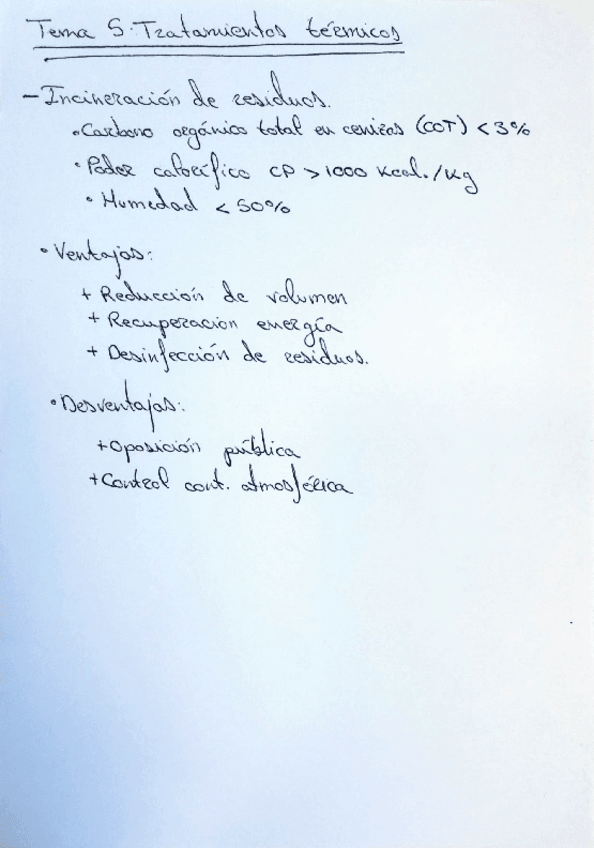 Tema 5: Tratamientos térmicos
- Incineración de residuos.
• Carbono orgánico total en cenizas (COT) < 3%
• Poder calorífico CP > 1000 Kcal./Kg
• Humedad < 50%
• Ventajas:
+ Reducción de volumen
+ Recuperación energía
+ Desinfección de residuos.
• Desventajas:
+ Oposición pública
+ Control cont. atmosférica